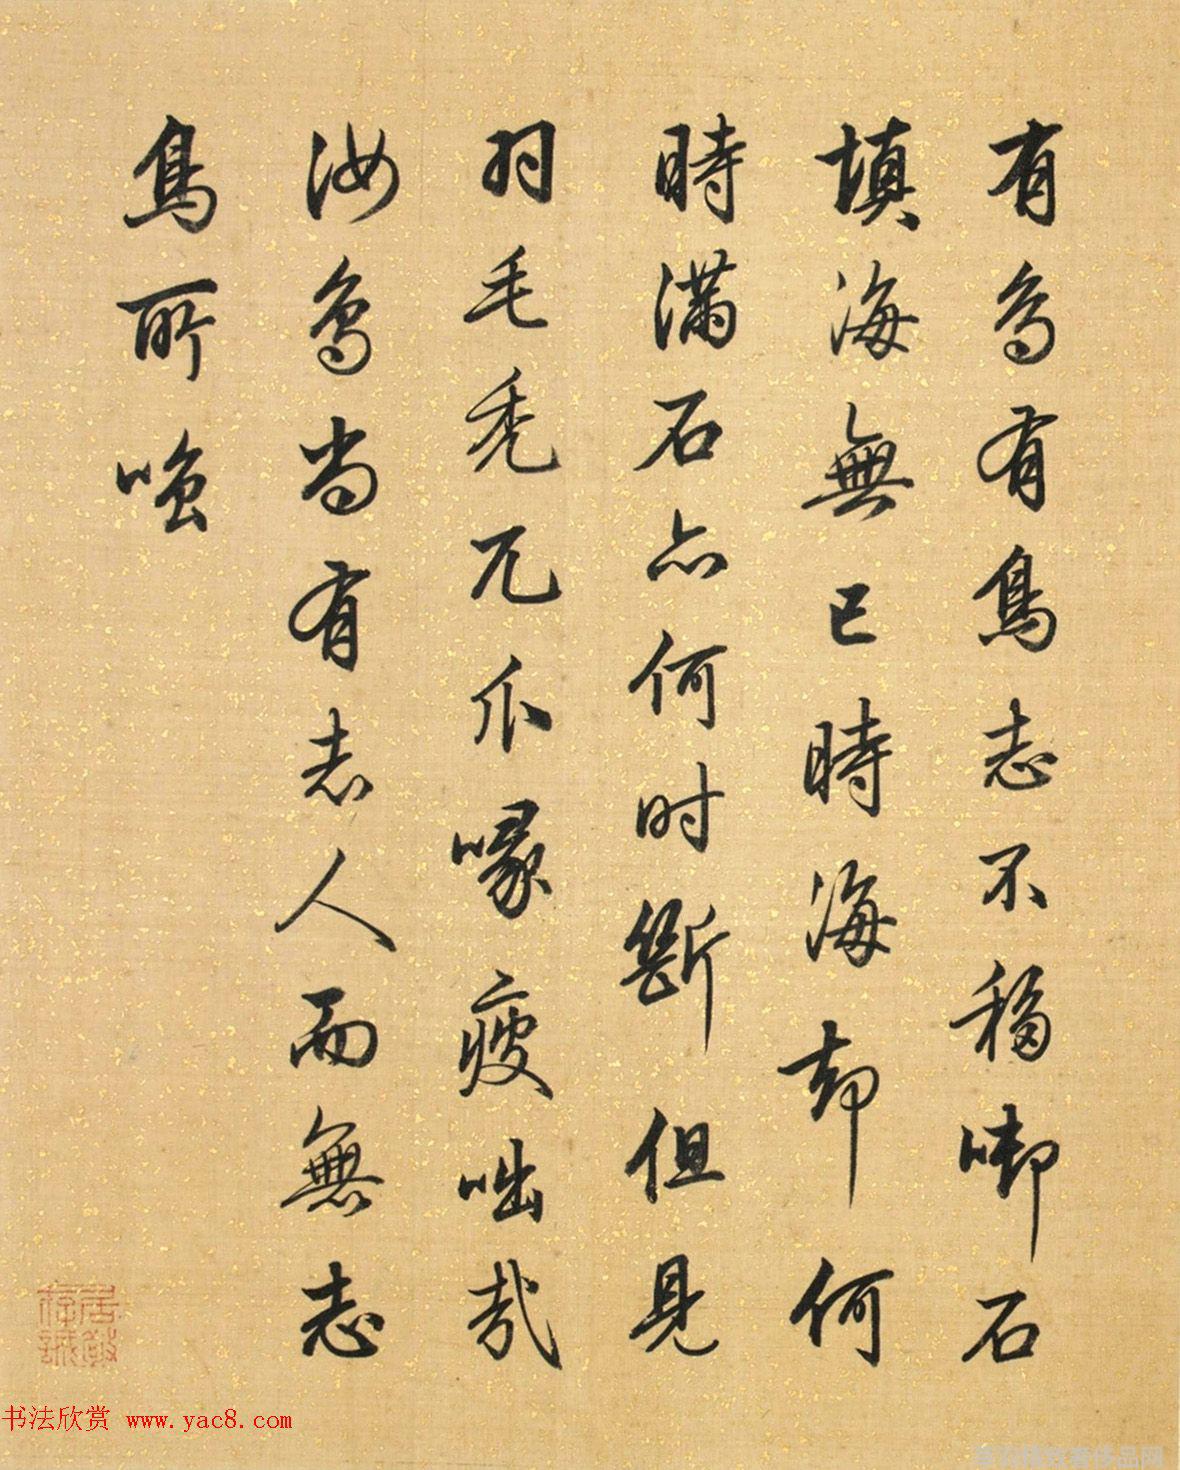 有鳥有鳥志不移啣石
填海海無已時海却何
時滿石亦何时斷但見
羽毛禿兀爪喙疲咄哉
汝鳥尚有志人而無志
鳥所嗤
居敬存誠
书法欣赏 www.yac8.com